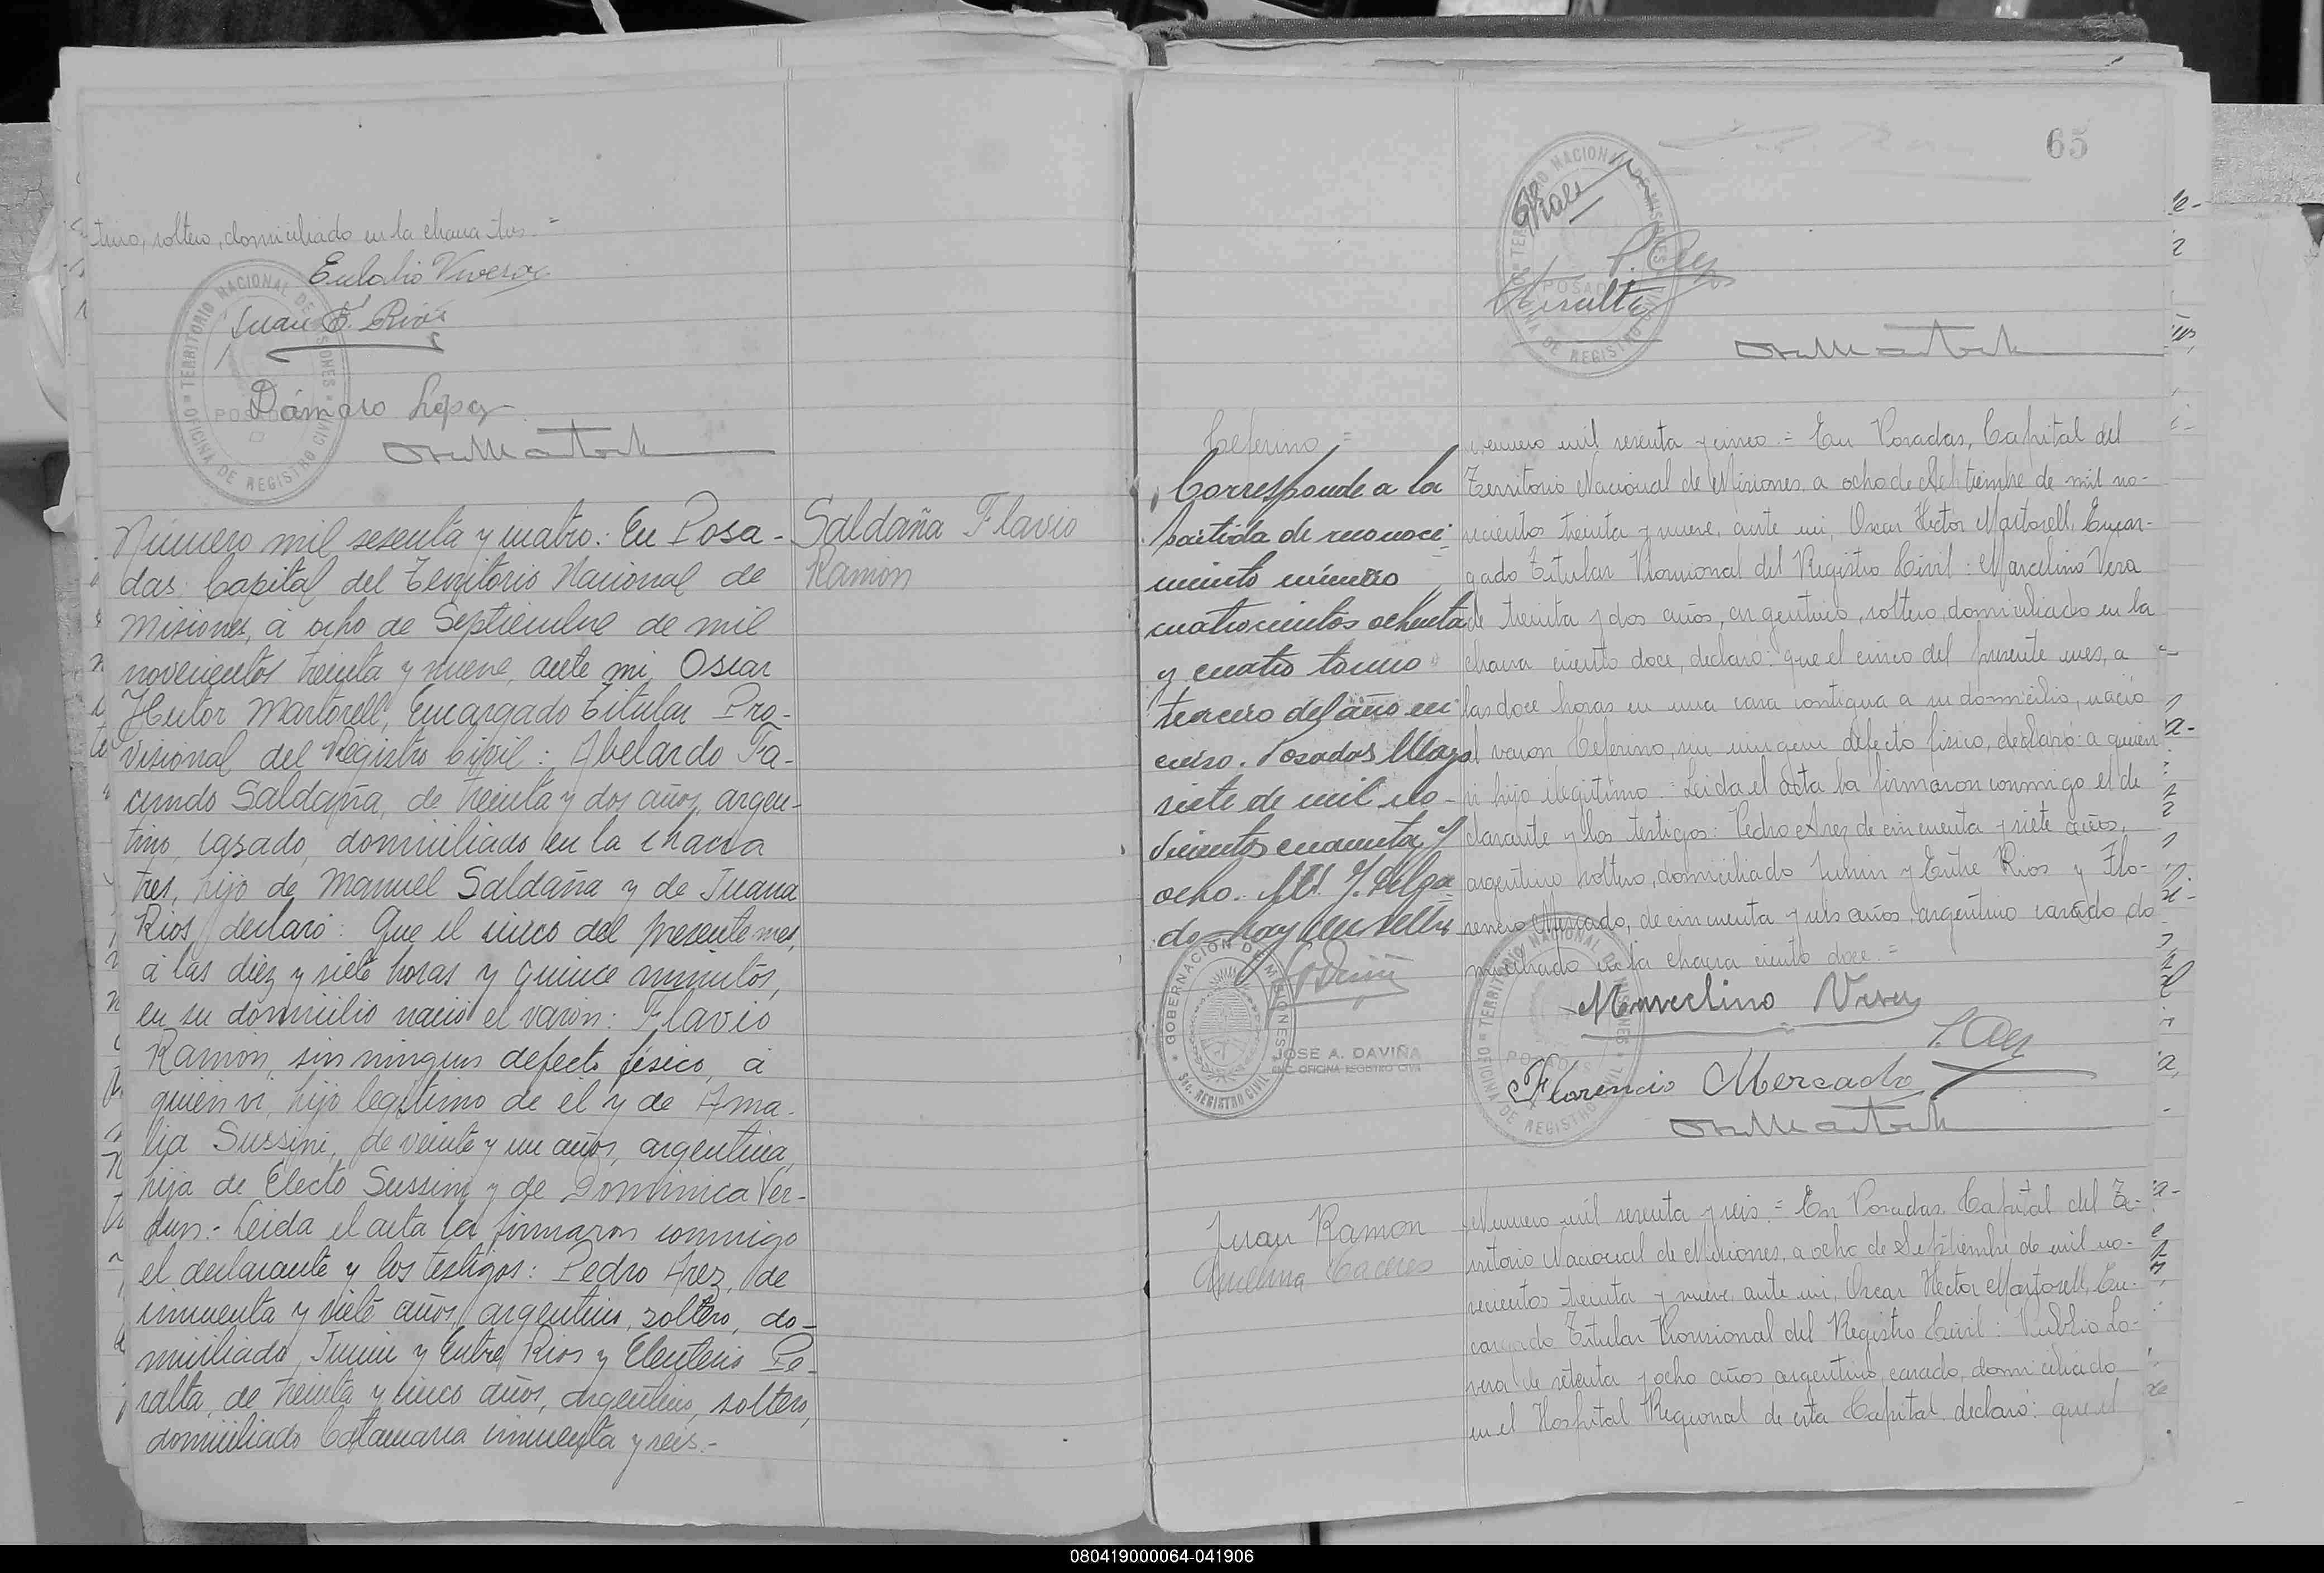 tino, soltero, domiciliado en la chacra tres.=
Eulalio Vivero
Juan E. Rios
TERRITORIO NACIONAL DE MISIONES
POSADAS
OFICINA DE REGISTRO CIVIL
Dámaso López
Numero mil sesenta y cuatro: En Posa-
das. Capital del Territorio Nacional de
Misiones, á ocho de Septiembre de mil
novecientos treinta y nueve, ante mi, Oscar
Hector Martorell, Encargado Titular Pro-
visional del Registro Civil: Abelardo Fa-
cundo Saldaña, de treinta y dos años, argen-
tino, casado, domiciliado en la chacra
tres, hijo de Manuel Saldaña y de Juana
Rios, declaró: Que el cinco del presente mes,
á las diez y siete horas y quince minutos,
en su domicilio nació el varón: Flavio
Ramón, sin ningun defecto físico, á
quién vi, hijo legítimo de él y de Ama-
lia Sussini, de veinte y un años, argentina,
hija de Electo Sussini y de Dominica Ver-
dun.- Leida el acta la firmaron conmigo
el declarante y los testigos: Pedro Arez, de
cincuenta y siete años, argentino, soltero, do-
miciliado Junin y Entre Rios y Eleuterio Pe-
ralta, de treinta y cinco años, argentino, soltero,
domiciliado Catamarca cincuenta y seis.-
Saldaña Flavio
Ramón
65
TERRITORIO NACIONAL DE MISIONES
POSADAS
OFICINA DE REGISTRO CIVIL
Ceferino =
Corresponde a la
partida de reconoci-
miento número
cuatrocientos ochenta
y cuatro tomo
tercero del año en
curso. Posadas Mayo
siete de mil no-
vecientos cuarenta y
ocho.
GOBERNACION DE MISIONES
SEC. REGISTRO CIVIL
JOSE A. DAVIÑA
ENC. OFICINA REGISTRO CIVIL
Numero mil sesenta y cinco.= En Posadas, Capital del
Territorio Nacional de Misiones, a ocho de Septiembre de mil no-
vecientos treinta y nueve, ante mi, Oscar Hector Martorell, Encar-
gado Titular Provisional del Registro Civil: Marcelino Vera
de treinta y dos años, argentino, soltero, domiciliado en la
chacra ciento doce, declaró: que el cinco del presente mes, a
las doce horas en una casa contigua a su domicilio, nació
el varon Ceferino, sin ningun defecto fisico, declaró: a quien
vi hijo ilegitimo. Leida el acta la firmaron conmigo el de
clarante y los testigos: Pedro Arez de cincuenta y siete años,
argentino soltero, domiciliado Junin y Entre Rios y Flo-
rencio Mercado, de cincuenta y seis años argentino casado, do
miciliado en la chacra ciento doce.=
Marcelino Vera
TERRITORIO NACIONAL DE MISIONES
POSADAS
OFICINA DE REGISTRO CIVIL
Florencio Mercado
Juan Ramon
Numero mil sesenta y seis.= En Posadas. Capital del Te-
rritorio Nacional de Misiones, a ocho de Septiembre de mil no-
vecientos treinta y nueve, ante mi, Oscar Hector Martorell, En-
cargado Titular Provisional del Registro Civil: Publio Lo-
vera de setenta y ocho años, argentino, casado, domiciliado
en el Hospital Regional de esta Capital declaró: que el
080419000064-041906